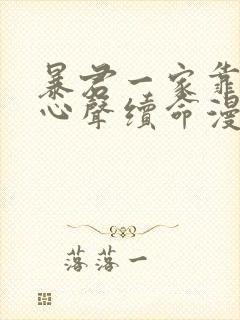 暴君一家靠
心聲續命漫
落落一